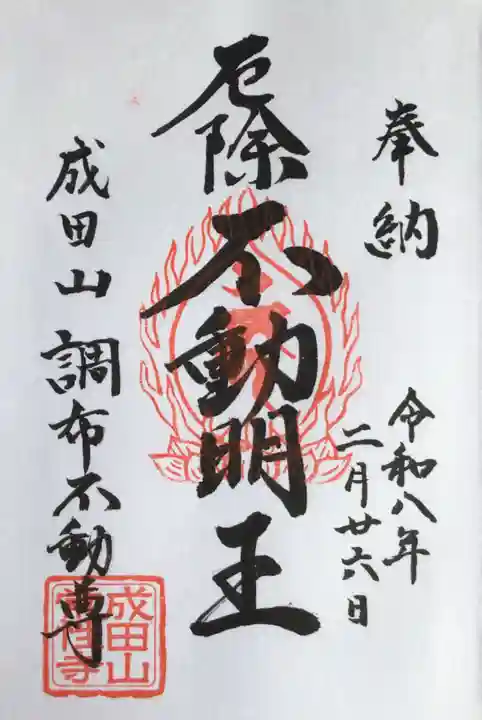 奉納
令和八年
二月廿六日
厄除不動明王
成田山調布不動尊
成田山